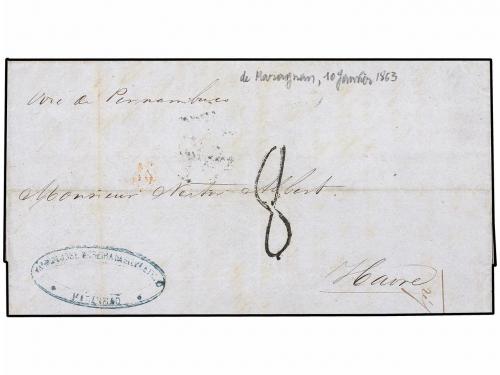 de Maragnan, 10 Janvier 1863
voie de Pernambuco
Monsieur Nestor Albert.
8
Havre
MARANHAO